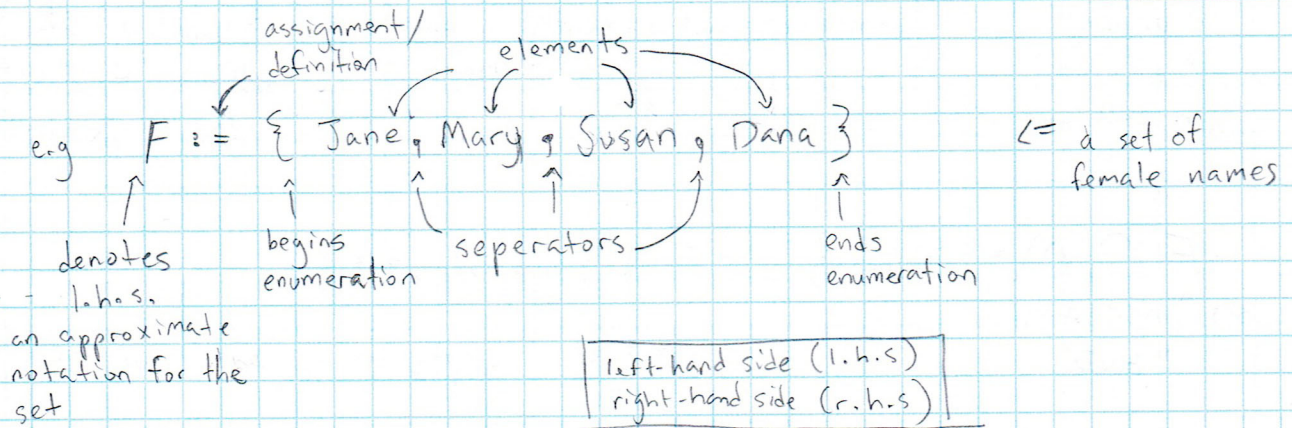 assignment/
definition
elements
e.g F := { Jane, Mary, Susan, Dana } <= a set of
female names
denotes
- l.h.s.
an approximate
notation for the
set
begins
enumeration
seperators
ends
enumeration
left-hand side (l.h.s)
right-hand side (r.h.s)